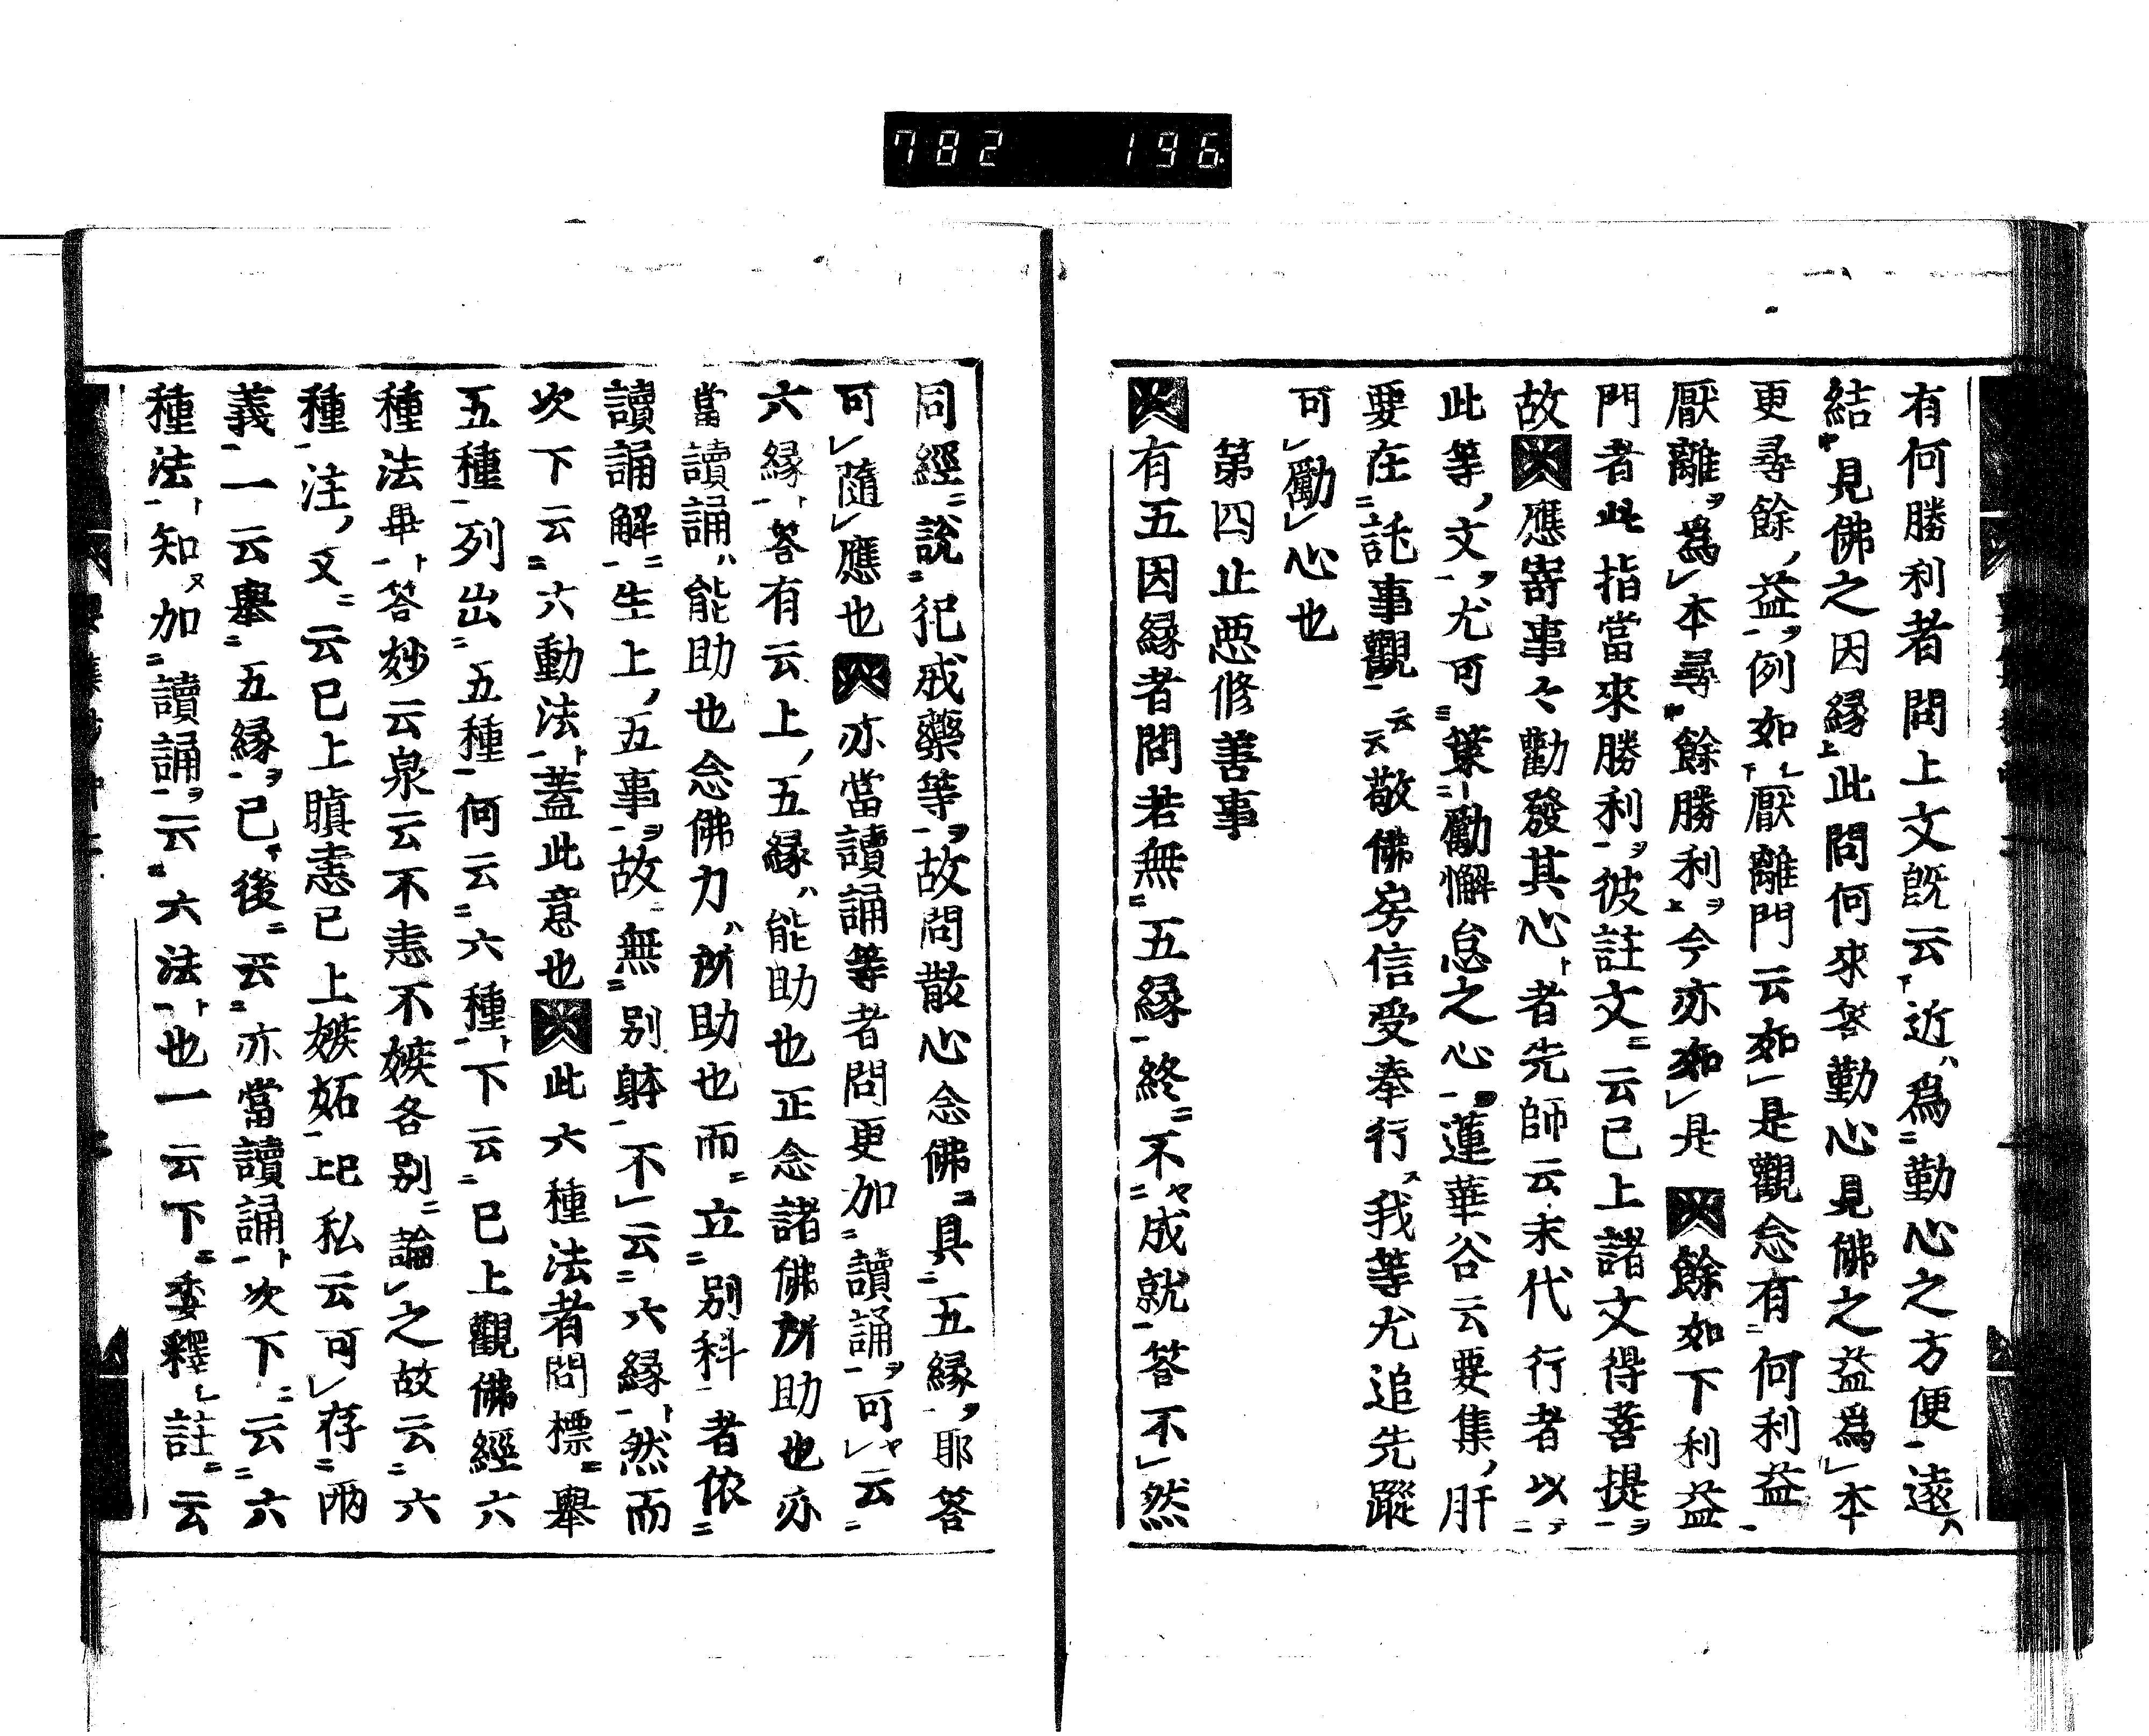 782 196
有何勝利者問上文既云近ハ爲勤心之方便遠ハ
結見佛之因縁此問何來答勤心見佛之益爲本
更尋餘益例如厭離門云如是觀念有何利益
厭離爲本尋餘勝利今亦如是 餘如下利益
門者此指當來勝利彼註文云已上諸文得菩提
故 應寄事々勸發其心者先師云末代行者以
此等文尤可策勵懈怠之心蓮華谷云要集肝
要在託事觀云云敬佛房信受奉行我等尤追先蹤
可勵心也
第四止惡修善事
有五因縁者問若無五縁終不成就答不然
同經説犯戒藥等故問散心念佛具五縁耶答
可隨應也 亦當讀誦等者問更加讀誦可云
六縁答有云上五縁ハ能助也正念諸佛所助也亦
當讀誦ハ能助也念佛力ハ所助也而立別科者依
讀誦解生上五事故無別躰不云六縁然而
次下云六動法蓋此意也 此六種法者問標擧
五種列出五種何云六種下云已上觀佛經六
種法畢答妙云泉云不恚不嫉各別論之故云六
種注文云已上瞋恚已上嫉妬已上私云可存兩
義一云擧五縁已後云亦當讀誦次下云六
種法知加讀誦云六法也一云下委釋註云